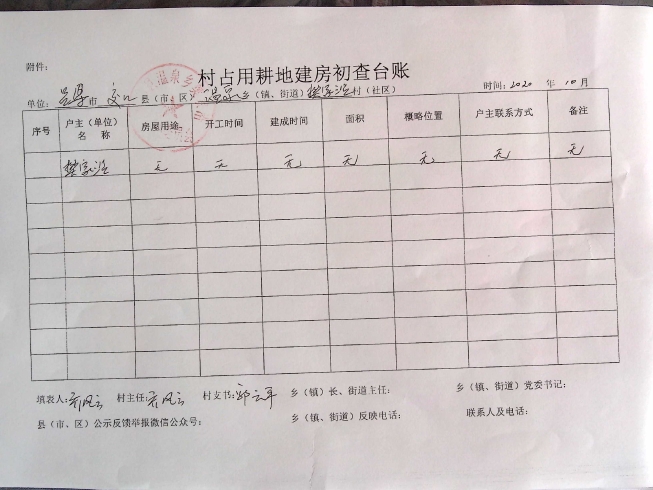 附件：
村占用耕地建房初查台账
单位：吕梁市 交口县（市、区）温泉乡（镇、街道）樊家沟村（社区） 时间：2020 年 10月
序号 户主（单位）名 称 房屋用途 开工时间 建成时间 面积 概略位置 户主联系方式 备注
樊家沟 无 无 无 无 无 无 无
填表人： 村主任： 村支书： 乡（镇）长、街道主任： 乡（镇、街道）党委书记：
县（市、区）公示反馈举报微信公众号： 乡（镇、街道）反映电话： 联系人及电话：